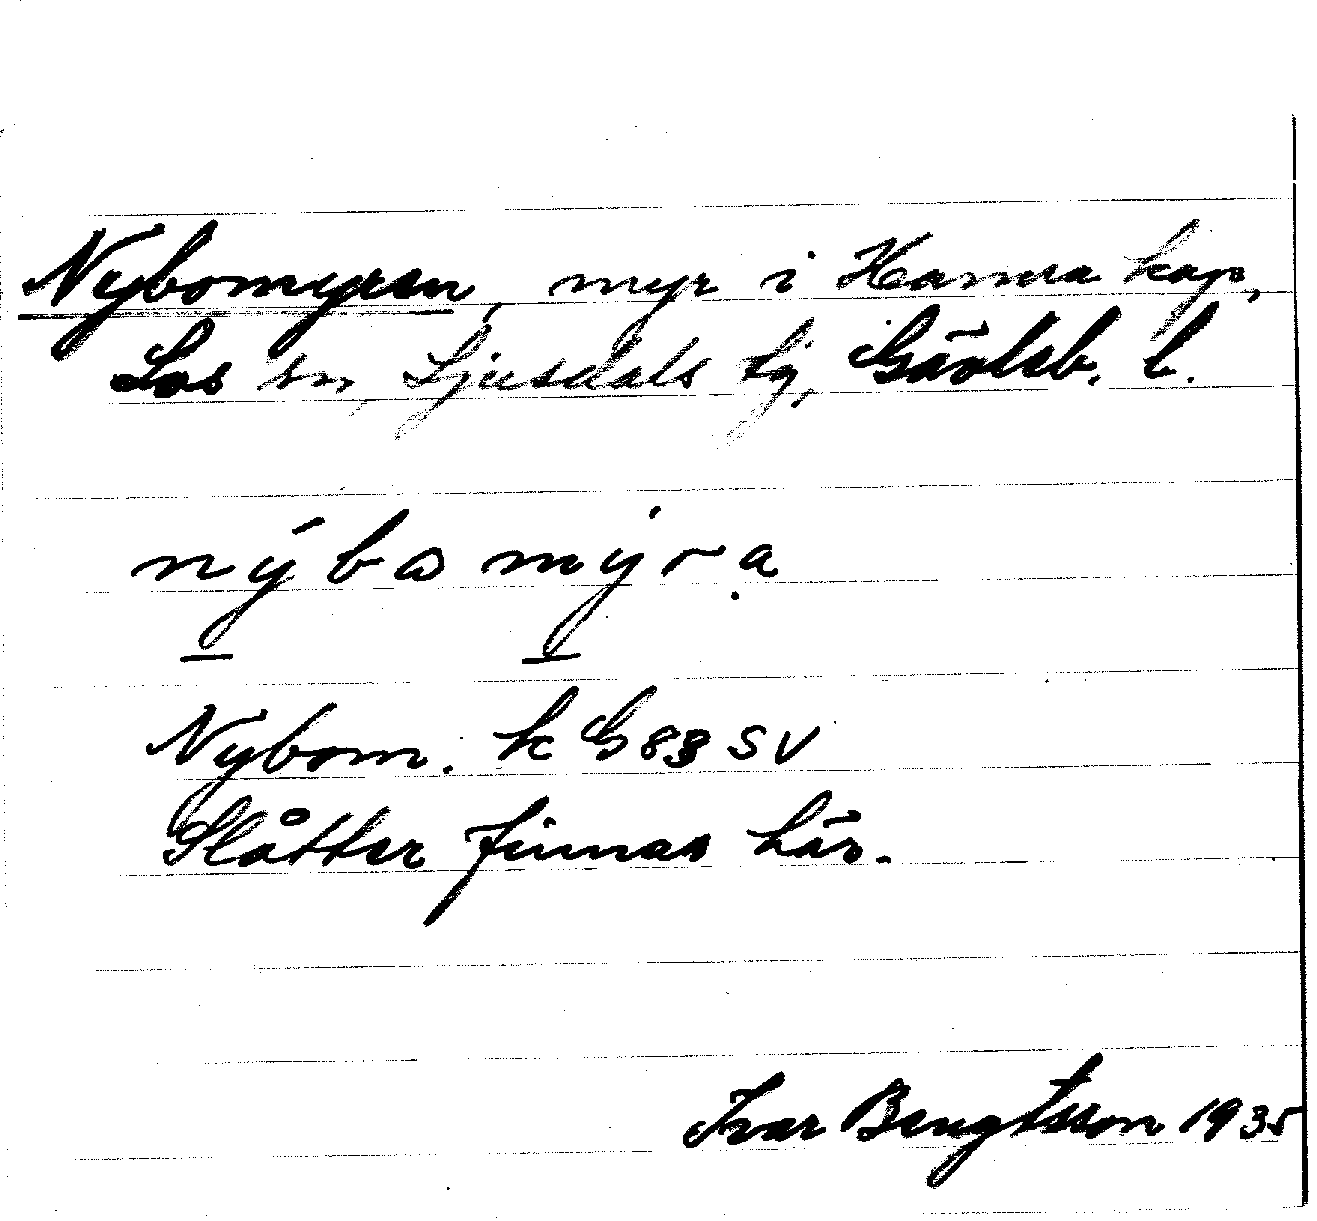 Nybomyren, myr i Hamra kap,
Los sn, Ljusdals tg, Gävleb. l.
nýbωmýrạ
Nybom. k G83 SV
Slåtter finnas här.
Ivar Bengtsson 1935